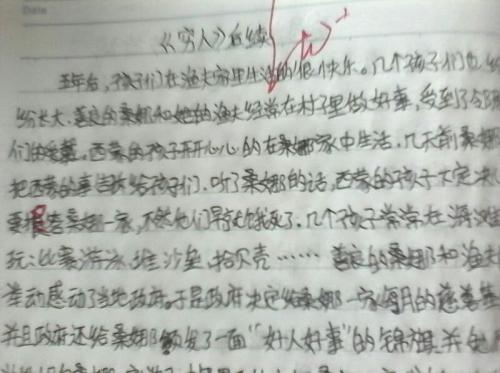 Date
《穷人》后续
五年后,孩子们在渔夫家里生活的很快乐。几个孩子们也
纷长大。善良的桑娜和她的渔夫经常在村子里做好事,受到了
们的爱戴。西蒙的孩子开开心心的在桑娜家中生活。几天前桑娜
把西蒙的事告诉给孩子们。听了桑娜的话,西蒙的孩子下定决
要报答桑娜一家,不然他们早就饿死了。几个孩子常常在海边
玩:比赛游泳、堆沙堡、拾贝壳……善良的桑娜和渔夫
举动感动了当地政府。于是政府决定给桑娜一家每月的慈善
并且政府还给桑娜颁发了一面“好人好事”的锦旗,并